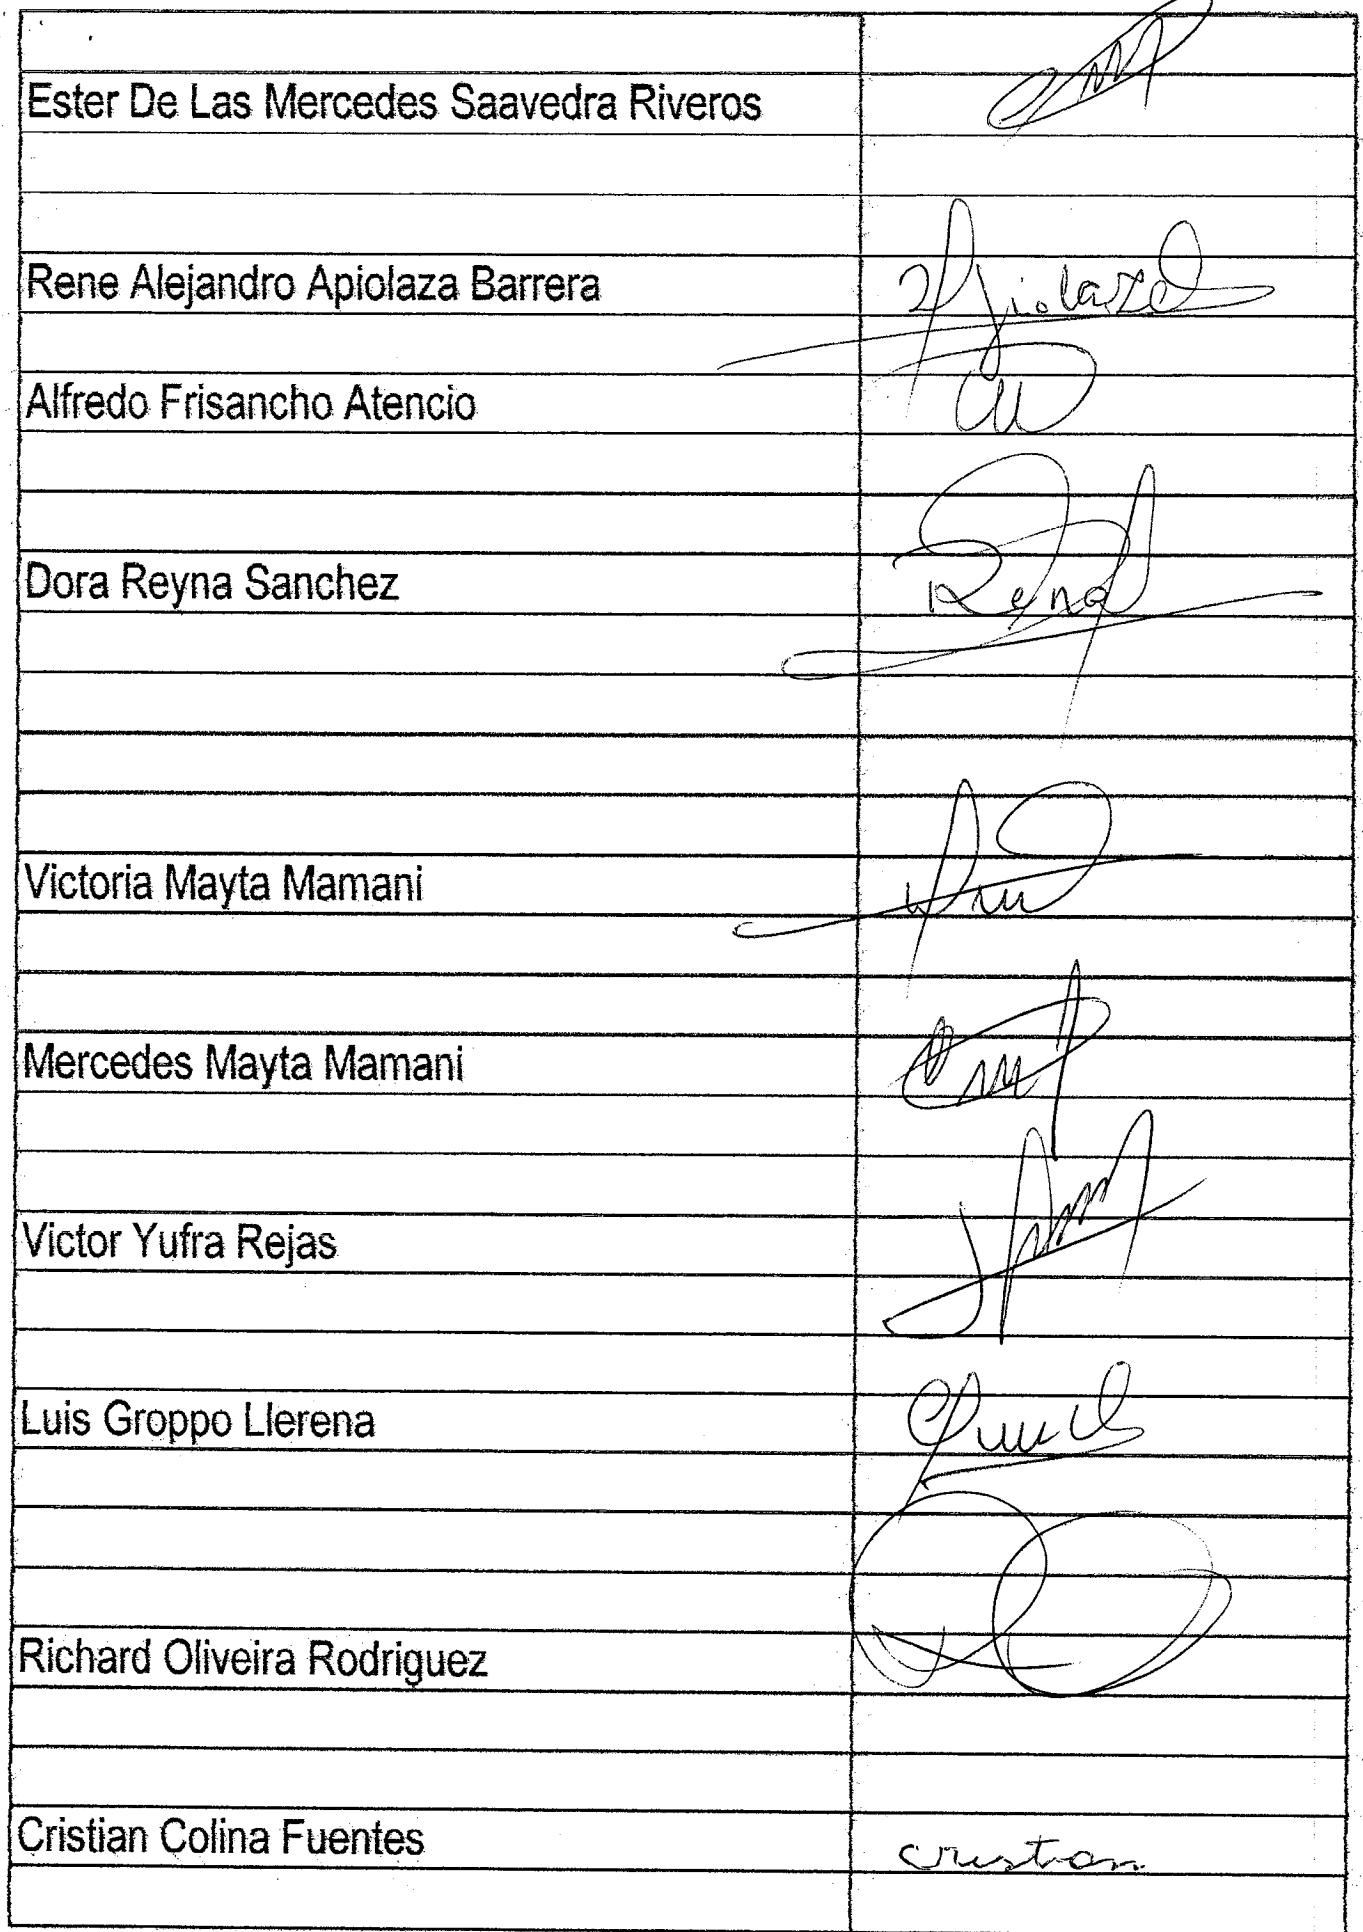 Ester De Las Mercedes Saavedra Riveros
Rene Alejandro Apiolaza Barrera
Apiolaza
Alfredo Frisancho Atencio
Dora Reyna Sanchez
Reyna
Victoria Mayta Mamani
Mercedes Mayta Mamani
Victor Yufra Rejas
Luis Groppo Llerena
Richard Oliveira Rodriguez
Cristian Colina Fuentes
Cristian